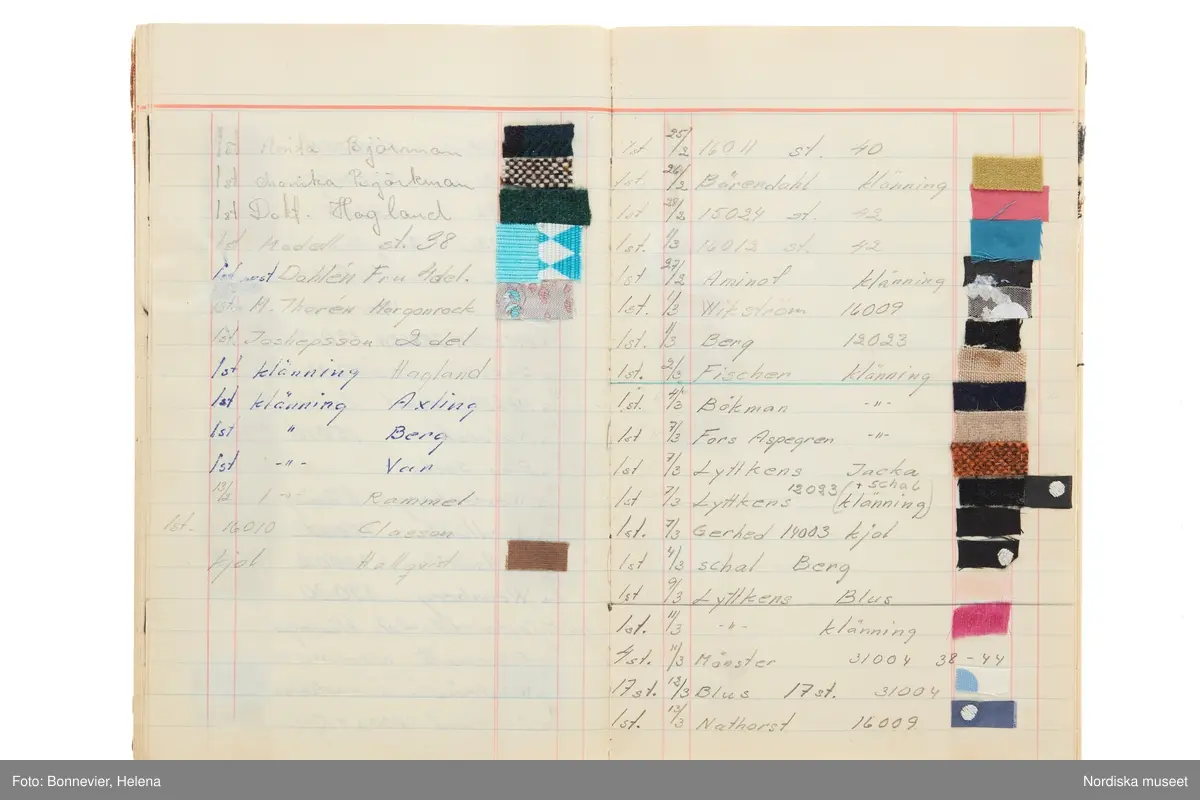 1st Monika Björkman
1st Monika Björkman
1st Dokt. Hagland
1st Modell st. 38
1st Dahlén Fru 4del.
1st. M. Thorén Morgonrock
1st. Joshepsson 2 del
1st klänning Hagland
1st klänning Axling
1st " Berg
1st -"- Van
13/2 1 -"- Rammel
1st. 16010 Classon
kjol Hallqvist
1st 25/2 16011 st. 40
1st. 26/2 Bärendahl klänning
1st 28/2 15024 st. 42
1st. 1/3 16012 st. 42
1st 27/2 Aminof klänning
1st. 1/3 Wikström 16009
1st. 1/3 Berg 12023
1st. 2/3 Fischer klänning
1st. 4/3 Bökman -"-
1st 7/3 Fors Aspegren -"-
1st 7/3 Lyttkens Jacka
1st 7/3 Lyttkens 12023 (klänning + schal)
1st. 7/3 Gerhed 14003 kjol
1st 4/3 schal Berg
1st 9/3 Lyttkens Blus
1st. 11/3 -"- klänning
4st. 11/3 Mönster 31004 38-44
17st. 12/3 Blus 17st. 31004
1st. 13/3 Nathorst 16009
Foto: Bonnevier, Helena
Nordiska museet